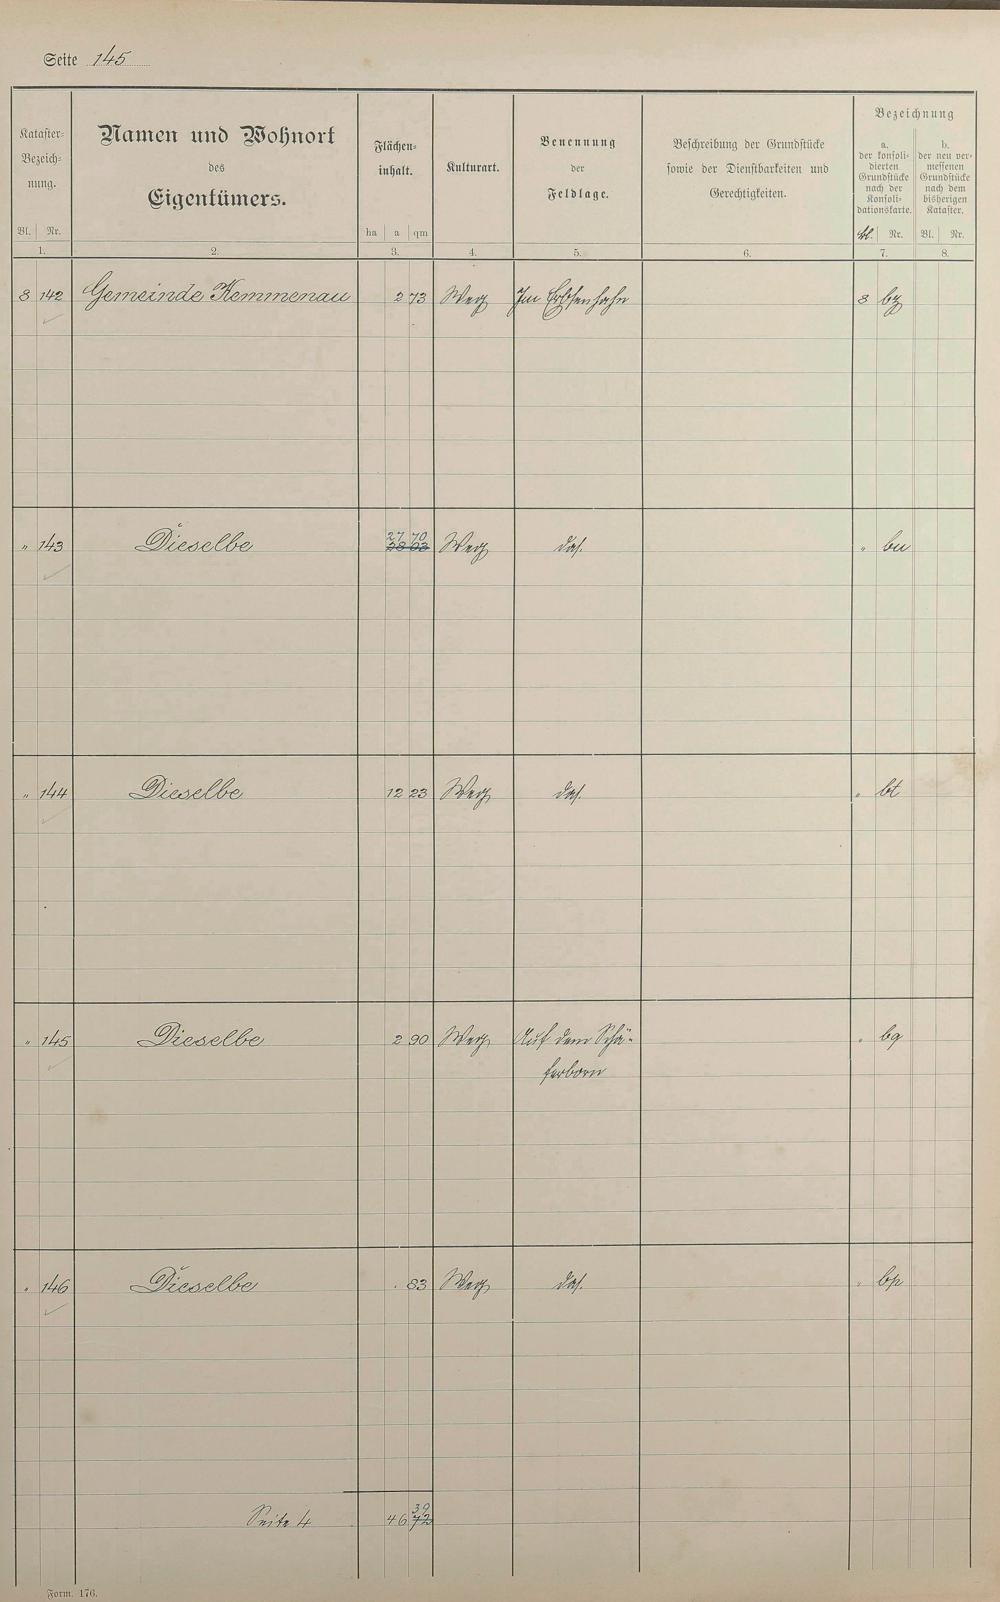 Seite 145
Kataster-
Bezeich-
nung.
Bl. Nr.
1.
Namen und Wohnort
des
Eigentümers.
2.
Flächen-
inhalt.
ha a qm
3.
Kulturart.
4.
Benennung
der
Feldlage.
5.
Beschreibung der Grundstücke
sowie der Dienstbarkeiten und
Gerechtigkeiten.
6.
Bezeichnung
a.
der konsoli-
dierten
Grundstücke
nach der
Konsoli-
dationskarte.
Bl. Nr.
7.
b.
der neu ver-
messenen
Grundstücke
nach dem
bisherigen
Kataster.
Bl. Nr.
8.
8 142 Gemeinde Kemmenau 2 73 Weg Im Erbsenhahn 8 bz
27 70
„ 143 Dieselbe 28 03 Weg das. „ bu
„ 144 Dieselbe 12 23 Weg das. „ bt
„ 145 Dieselbe 2 90 Weg Auf dem Schä-
ferborn
„ bq
„ 146 Dieselbe . 83 Weg das. „ bp
39
Seite 4 46 72
Form. 176.